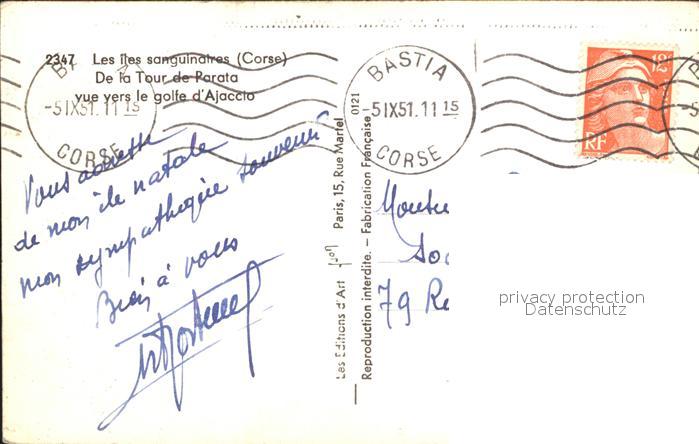 2347 Les îles sanguinaires (Corse)
De la Tour de Parata
vue vers le golfe d'Ajaccio
-5IX51.11 15
CORSE
BASTIA
-5IX51.11 15
CORSE
12
RF
Vous
de mon île natale
mon sympathique souvenir
Bien à vous
Les Editions d'Art Yvon Paris, 15, Rue Martel
0121
Reproduction interdite. – Fabrication Française
79
privacy protection
Datenschutz